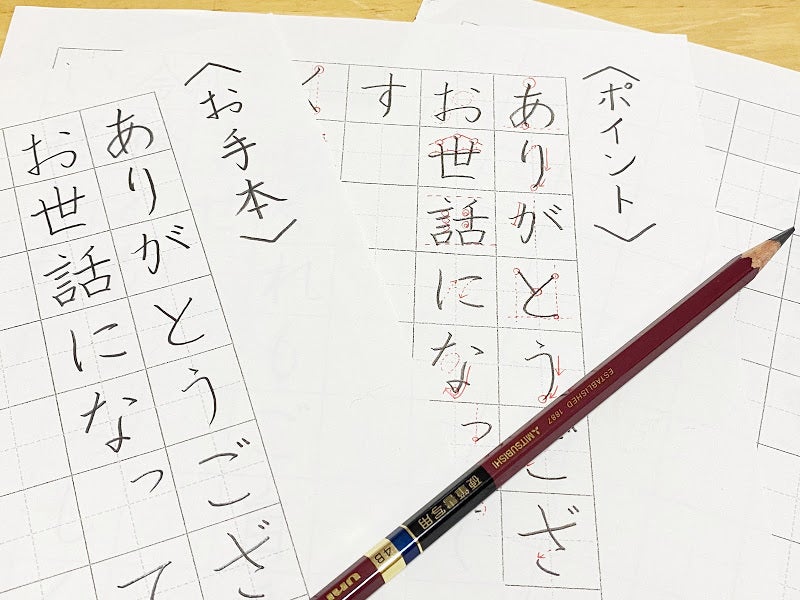 〈ポイント〉
ありがとうござ
お世話になっ
す
〈お手本〉
ありがとうござ
お世話になって
ESTABLISHED 1887
MITSUBISHI
硬筆書写用
4B
uni